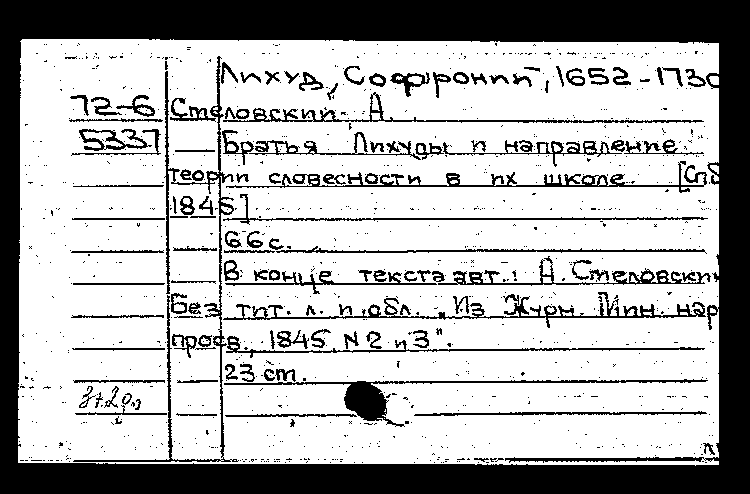 Лихуд, Софроний, 1652-1730
72-6 Стеловский А.
5337 Братья Лихуды и направление
теории словесности в их школе. [Спб
1845]
66с.
В конце текста авт.: А. Стеловский
Без тит. л. и обл. "Из Журн. Мин. нар
просв., 1845 N 2 и 3".
23 cm.